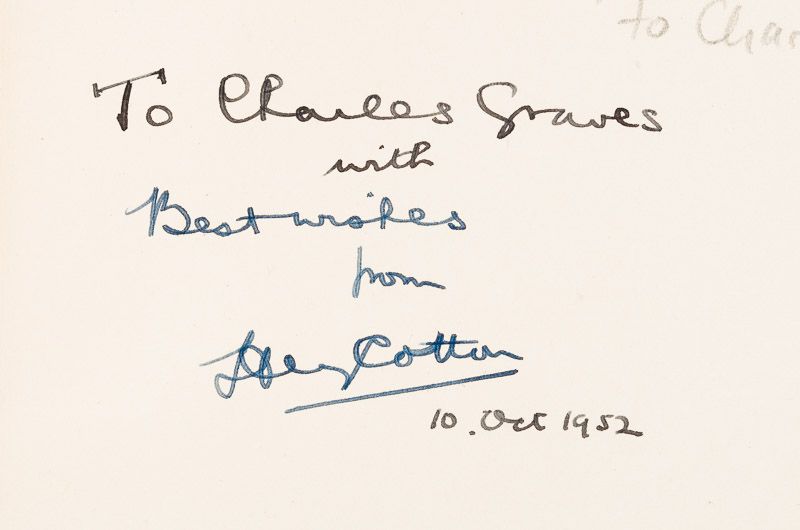 To Char
To Charles Graves
with
Best wishes
from
Henry Cotton
10. Oct 1952